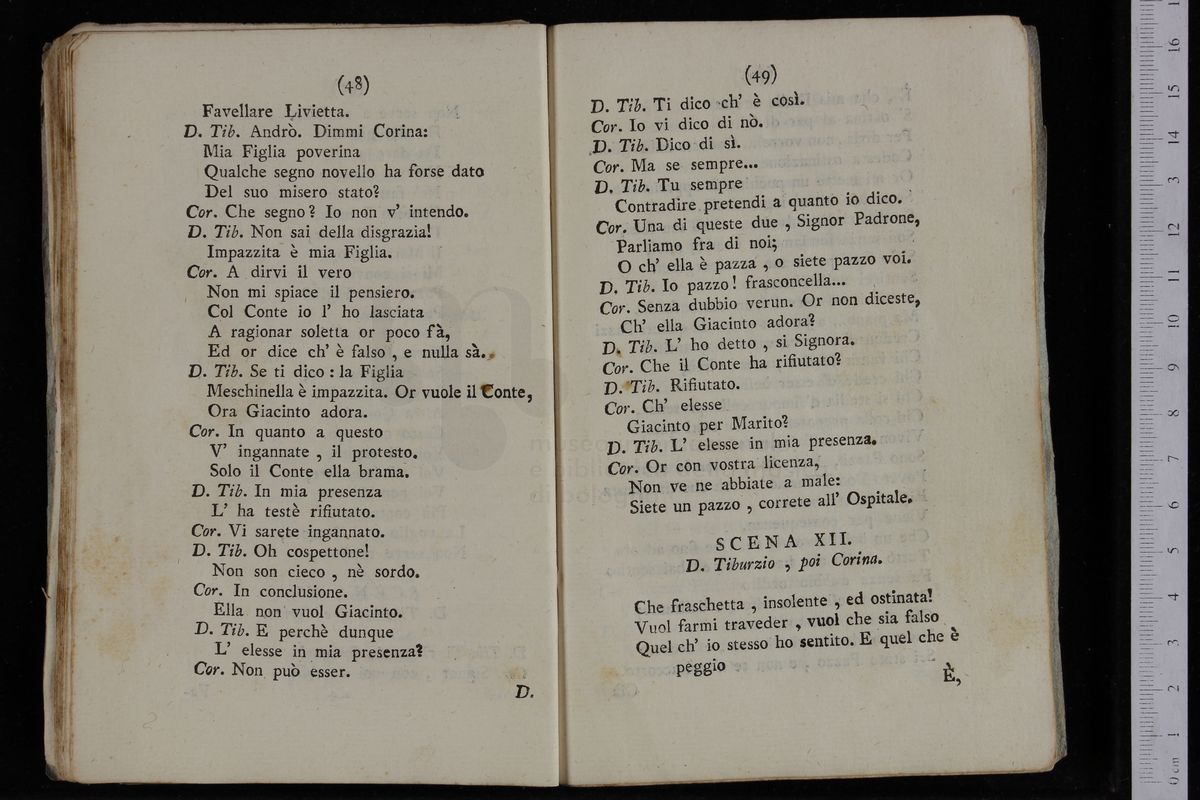 (48)
Favellare Livietta.
D. Tib. Andrò. Dimmi Corina:
Mia Figlia poverina
Qualche segno novello ha forse dato
Del suo misero stato?
Cor. Che segno? Io non v' intendo.
D. Tib. Non sai della disgrazia!
Impazzita è mia Figlia.
Cor. A dirvi il vero
Non mi spiace il pensiero.
Col Conte io l' ho lasciata
A ragionar soletta or poco fà,
Ed or dice ch' è falso, e nulla sà.
D. Tib. Se ti dico: la Figlia
Meschinella è impazzita. Or vuole il Conte,
Ora Giacinto adora.
Cor. In quanto a questo
V' ingannate, il protesto.
Solo il Conte ella brama.
D. Tib. In mia presenza
L' ha testè rifiutato.
Cor. Vi sarete ingannato.
D. Tib. Oh cospettone!
Non son cieco, nè sordo.
Cor. In conclusione.
Ella non vuol Giacinto.
D. Tib. E perchè dunque
L' elesse in mia presenza?
Cor. Non può esser.
D.
(49)
D. Tib. Ti dico ch' è così.
Cor. Io vi dico di nò.
D. Tib. Dico di sì.
Cor. Ma se sempre...
D. Tib. Tu sempre
Contradire pretendi a quanto io dico.
Cor. Una di queste due, Signor Padrone,
Parliamo fra di noi;
O ch' ella è pazza, o siete pazzo voi.
D. Tib. Io pazzo! frasconcella...
Cor. Senza dubbio verun. Or non diceste,
Ch' ella Giacinto adora?
D. Tib. L' ho detto, si Signora.
Cor. Che il Conte ha rifiutato?
D. Tib. Rifiutato.
Cor. Ch' elesse
Giacinto per Marito?
D. Tib. L' elesse in mia presenza.
Cor. Or con vostra licenza,
Non ve ne abbiate a male:
Siete un pazzo, correte all' Ospitale.
SCENA XII.
D. Tiburzio, poi Corina.
Che fraschetta, insolente, ed ostinata!
Vuol farmi traveder, vuol che sia falso
Quel ch' io stesso ho sentito. E quel che è
peggio
È,
0 cm 1 2 3 4 5 6 7 8 9 10 11 12 13 14 15 16